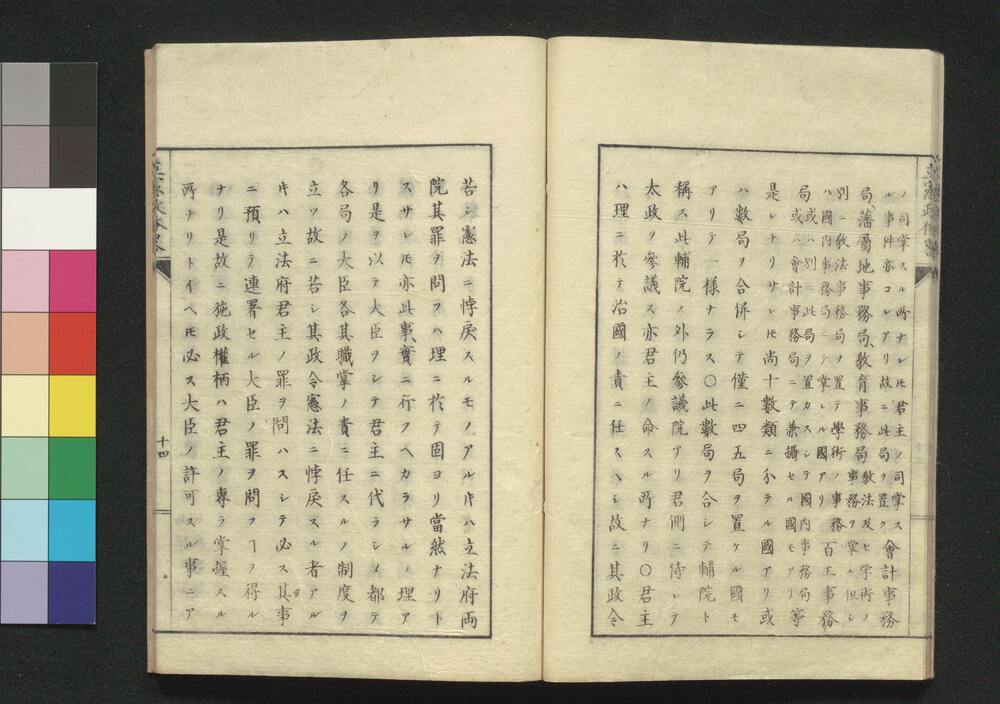 立憲政体略
ノ司掌スル所ナレ𪜈君主ノ司掌ス
ル事件亦コレアリ故ニ此局ヲ置ク
會計事務
局、藩屬地事務局、敎育事務局
敎法及ヒ学術ノ
事務ヲ掌ル但シ
別ニ敎法事務局ヲ置テ學術ノ事務
ハ國内事務局ニテ掌レル國アリ
百工事務
局
或ハ別ニ此局ヲ置カスシテ國内事務局
或ハ會計事務局ニテ兼攝セル國モアリ
等
是レナリサレ𪜈尚十數類ニ分テル國アリ或
ハ數局ヲ合併シテ僅ニ四五局ヲ置ケル國モ
アリテ一様ナラス〇此數局ヲ合シテ輔院ト
稱ス此輔院ノ外仍參議院アリ君側ニ侍シテ
太政ヲ參議ス亦君主ノ命スル所ナリ〇君主
ハ理ニ於テ治國ノ責ニ任スヘシ故ニ其政令
若シ憲法ニ悖戾スルモノアル𪜈ハ立法府両
院其罪ヲ問フハ理ニ於テ固ヨリ當然ナリト
スサレ𪜈亦此事、實ニ行フヘカラサルノ理ア
リ是ヲ以テ大臣ヲシテ君主ニ代ラシメ都テ
各局ノ大臣各其職掌ノ責ニ任スルノ制度ヲ
立ツ故ニ若シ其政令憲法ニ悖戾スル者アル
𪜈ハ立法府君主ノ罪ヲ問ハスシテ必ス其事
ニ預リテ連署セル大臣ノ罪ヲ問フヿヲ得ル
ナリ是故ニ施政權柄ハ君主ノ專ラ掌握スル
所ナリトイヘ𪜈必ス大臣ノ許可スル事ニア
十四